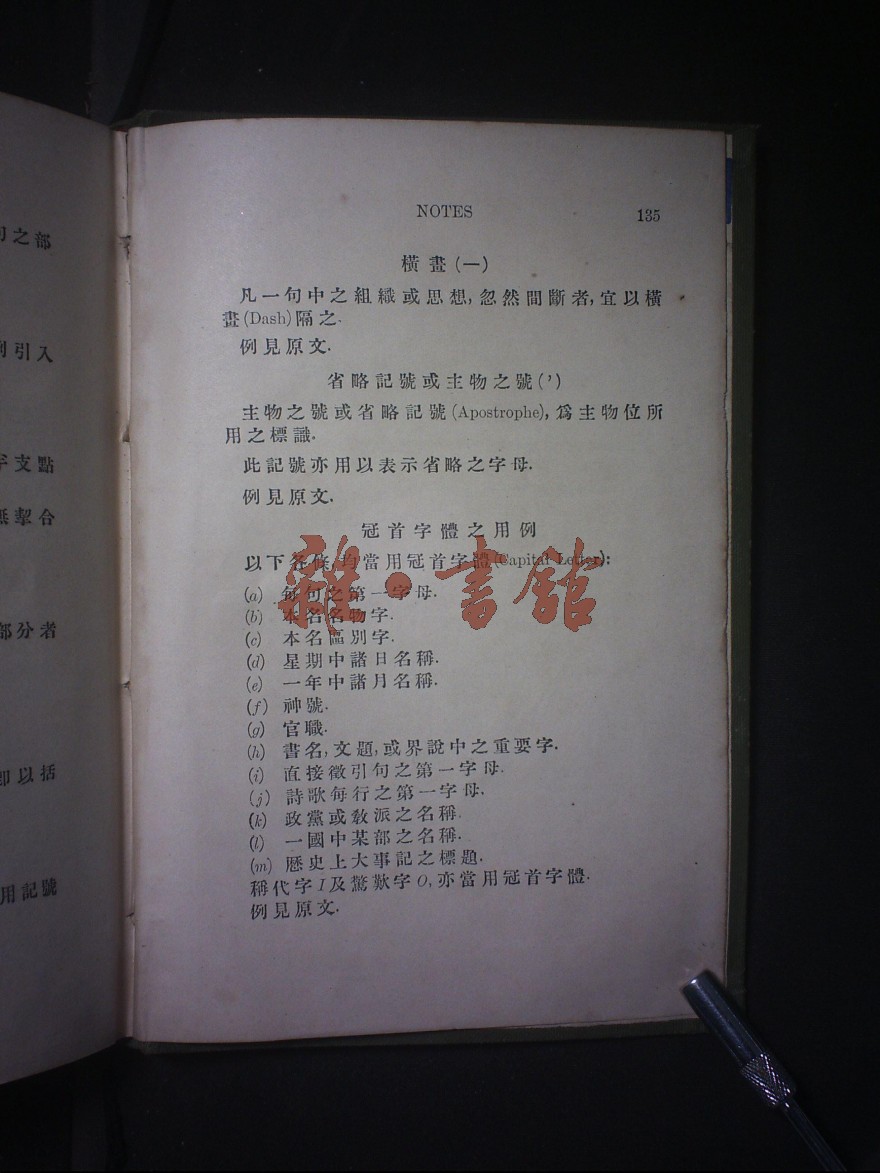 句之部
例引入
字支點
無挈合
部分者
即以括
用記號
NOTES 135
橫畫(—)
凡一句中之組織或思想,忽然間斷者,宜以橫
畫(Dash)隔之.
例見原文.
省略記號或主物之號(’)
主物之號或省略記號(Apostrophe),爲主物位所
用之標識.
此記號亦用以表示省略之字母.
例見原文.
冠首字體之用例
以下各條,均當用冠首字體(Capital Letter):
(a) 每句之第一字母.
(b) 本名名物字.
(c) 本名區別字.
(d) 星期中諸日名稱.
(e) 一年中諸月名稱.
(f) 神號.
(g) 官職.
(h) 書名,文題,或界說中之重要字.
(i) 直接徵引句之第一字母.
(j) 詩歌每行之第一字母.
(k) 政黨或敎派之名稱.
(l) 一國中某部之名稱.
(m) 歷史上大事記之標題.
稱代字 I 及驚歎字 O,亦當用冠首字體.
例見原文.
雜·書館